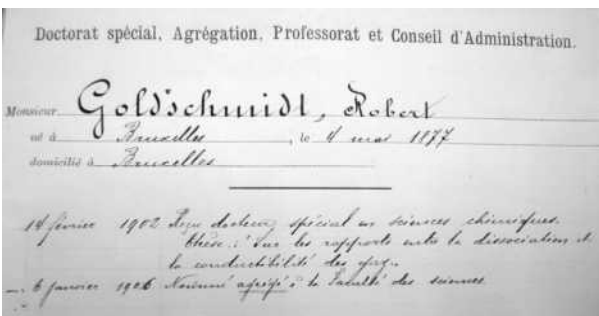 Doctorat spécial, Agrégation, Professorat et Conseil d'Administration.
Monsieur Goldschmidt, Robert
né à Bruxelles, le 4 mai 1877
domicilié à Bruxelles
14 février 1902 Reçu docteur spécial en sciences chimiques.
thèse : sur les rapports entre la dissociation et
la conductibilité des gaz.
6 janvier 1906 Nommé agrégé à la Faculté des sciences